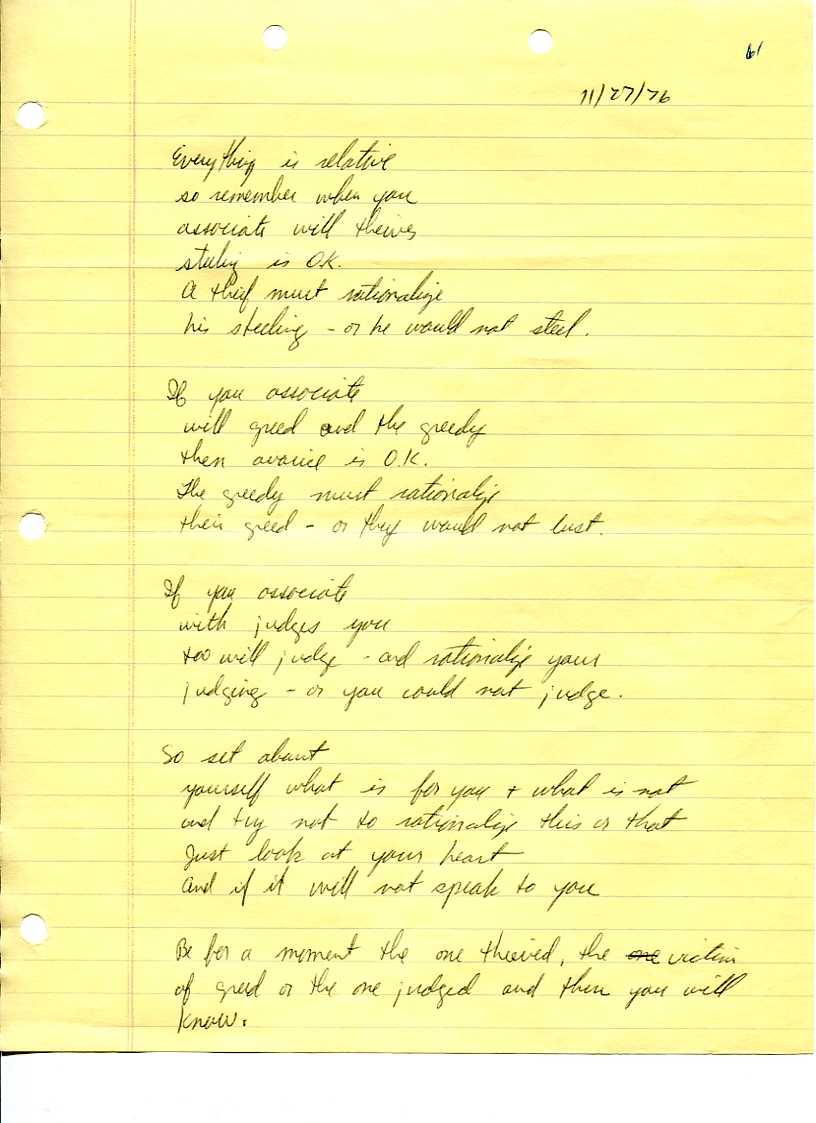 61
11/27/76
Everything is relative
so remember when you
associate will theives
steeling is O.K.
A thief must rationalize
his steeling - or he would not steel.
If you associate
will greed and the greedy
then avarice is O.K.
The greedy must rationalize
their greed - or they would not lust.
If you associate
with judges you
too will judge - and rationalize your
judging - or you could not judge.
So set about
yourself what is for you + what is not
and try not to rationalize this or that
Just look at your heart
and if it will not speak to you
Be for a moment the one thieved, the one victim
of greed or the one judged and then you will
know.